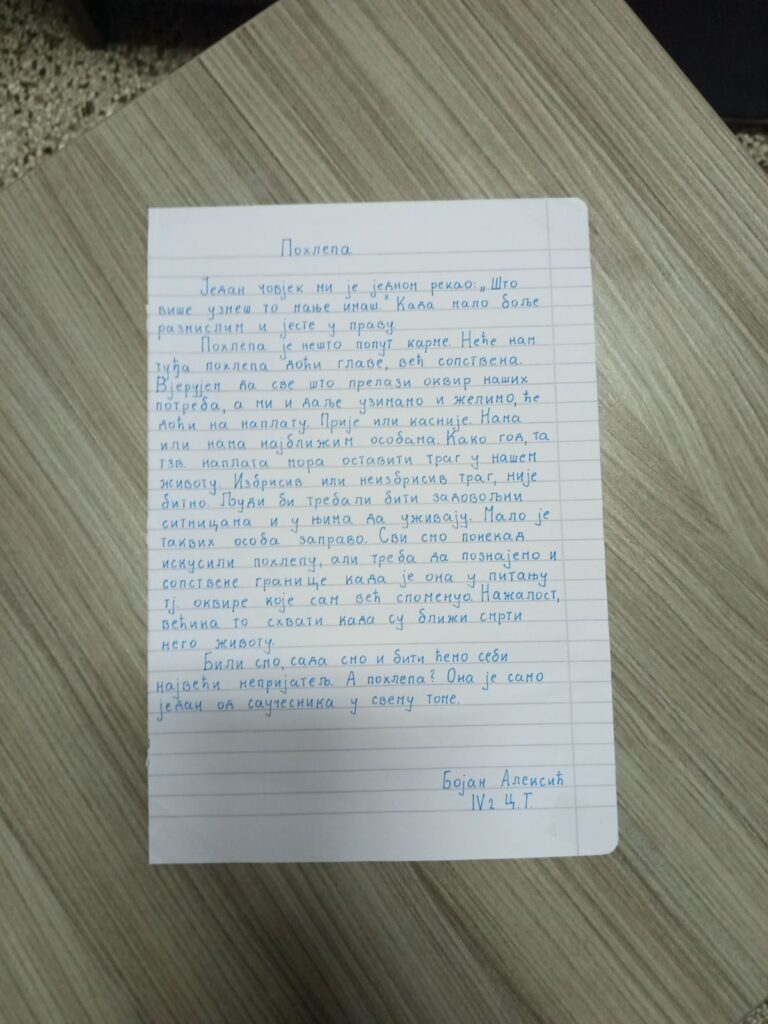 Похлепа
Један човјек ми је једном рекао: „Што
више узмеш то мање имаш." Када мало боље
размислим и јесте у праву.
Похлепа је нешто попут карме. Неће нам
туђа похлепа доћи главе, већ сопствена.
Вјерујем да све што прелази оквир наших
потреба, а ми и даље узимамо и желимо, ће
доћи на наплату. Прије или касније. Нама
или нама најближим особама. Како год, та
тзв. наплата мора оставити траг у нашем
животу. Избрисив или неизбрисив траг, није
битно. Људи би требали бити задовољни
ситницама и у њима да уживају. Мало је
таквих особа заправо. Сви смо понекад
искусили похлепу, али треба да познајемо и
сопствене границе када је она у питању
тј. оквире које сам већ споменуо. Нажалост,
већина то схвати када су ближи смрти
него животу.
Били смо, сада смо и бити ћемо себи
највећи непријатељ. А похлепа? Она је само
један од саучесника у свему томе.
Бојан Алексић
IV2 Ц.Т.